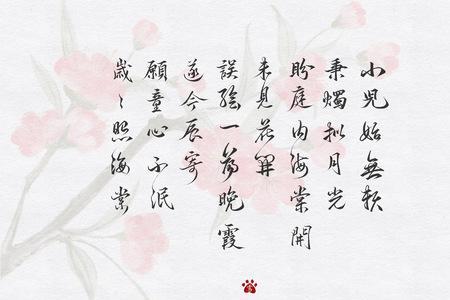 小兒始無賴
秉燭拟月光
盼庭内海棠開
未見花開
誤繪一篇晚霞
遂今辰寄
願童心不泯
歲〻照海棠